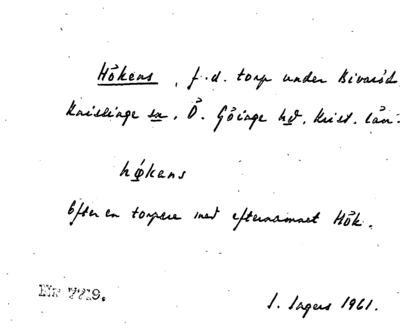 Hökens, f.d. torp under Bivaröd
Knislinge sn, Ö. Göinge hd, Krist. län.
hǿkens
Efter en torpare med efternamnet Hök.
Nr 779.
I. Ingers 1961.